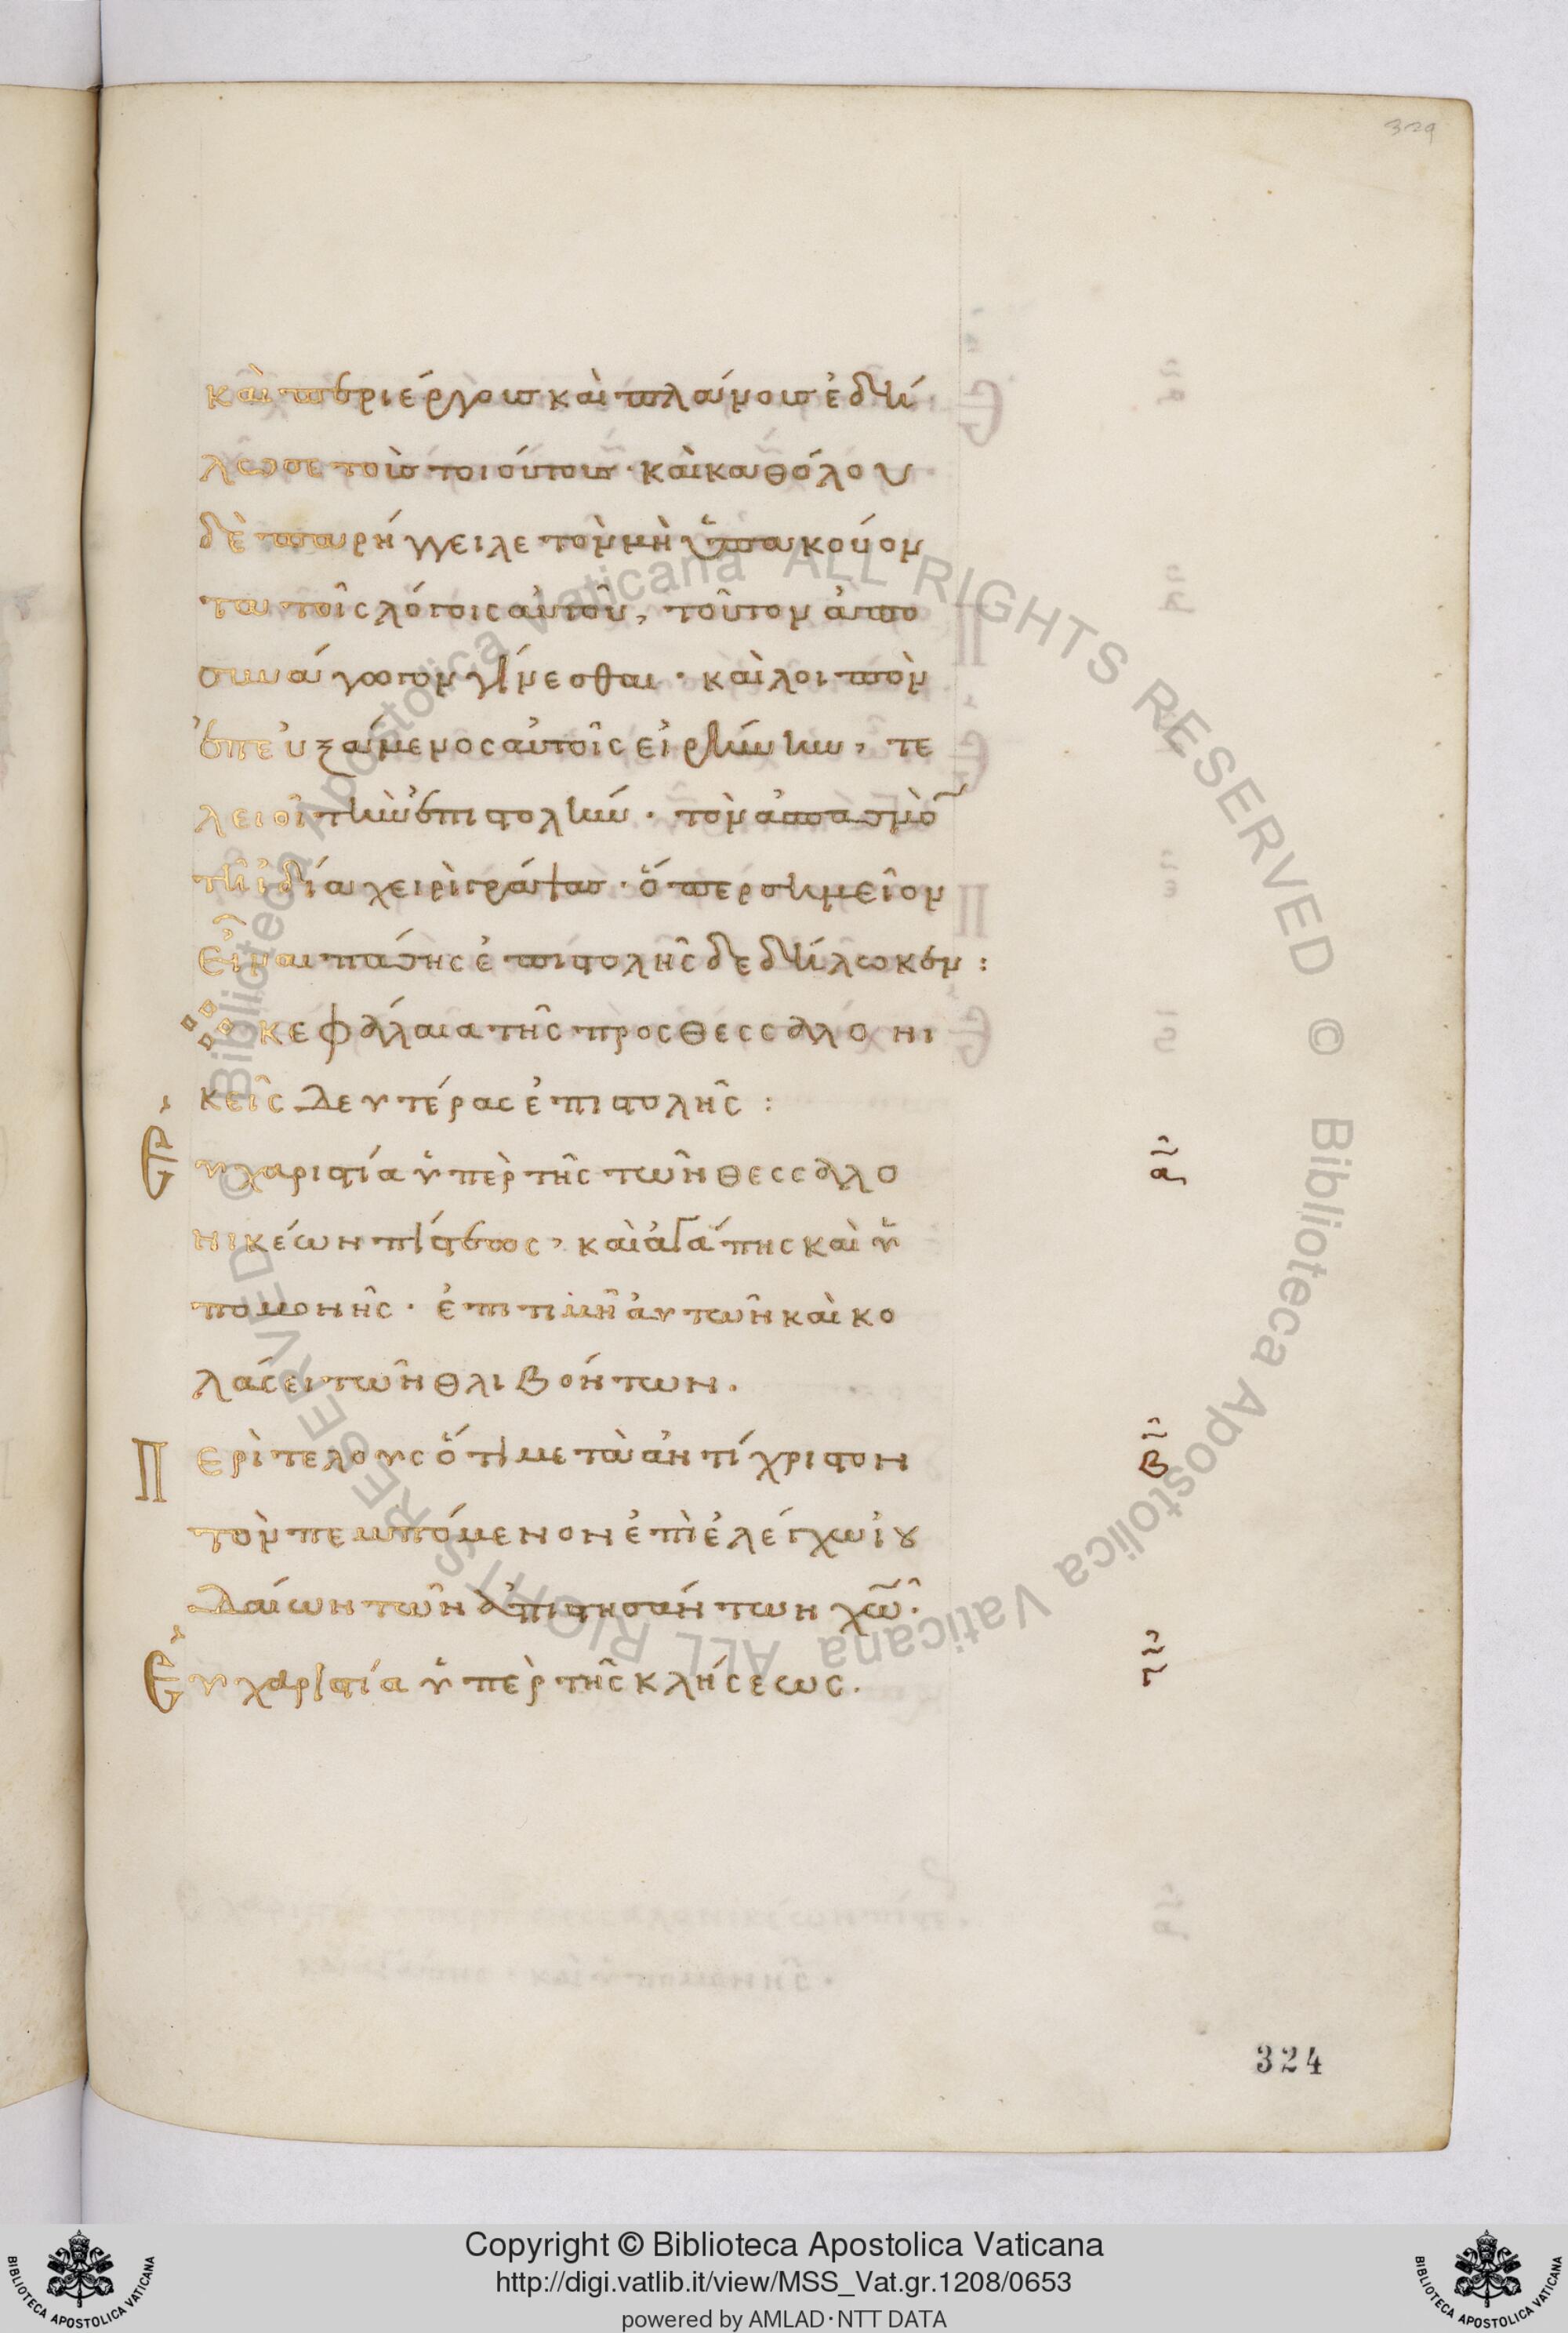 329
καὶ περιέργους καὶ πλάνους ἐδή
λωσε τοὺς τοιούτους · καὶ καθόλου
δὲ παρήγγειλε τὸν μὴ ὑπακούον
τα τοῖς λόγοις αὐτοῦ, τοῦτον ἀπο
συνάγωγον γίνεσθαι · καὶ λοιπὸν
ἐπευξάμενος αὐτοῖς εἰρήνην, τε
λειοῖ τὴν ἐπιστολήν · τὸν ἀσπασμὸν
τῆ ἰδία χειρὶ γράψας · ὅπερ σημεῖον
εἶναι πάσης ἐπιστολῆς δεδήλωκεν :
κεφάλαια τῆς προς θεσσαλονι
κεῖς δευτέρας ἐπιστολῆς :
Εὐχαριστία ὑπὲρ τῆς τῶν θεσσαλο α
νικέων πίστεως, καὶ ἀγάπης καὶ ὑ
πομονῆς · ἐπι τιμῆ ἀυτῶν καὶ κο
λάσει τῶν θλιβόντων .
Περὶ τελους ὅτι μετὰ ἀντίχριστον β
τὸν πεμπόμενον ἐπὶ ἐλέγχω ἰου
δαίων τῶν ἀπιστησάντων χω̃ ·
Εὐχαριστία ὑπὲρ τῆς κλήσεως . γ
324
Copyright © Biblioteca Apostolica Vaticana
http://digi.vatlib.it/view/MSS_Vat.gr.1208/0653
powered by AMLAD·NTT DATA
BIBLIOTECA APOSTOLICA VATICANA
BIBLIOTECA APOSTOLICA VATICANA
© Biblioteca Apostolica Vaticana ALL RIGHTS RESERVED © Biblioteca Apostolica Vaticana ALL RIGHTS RESERVED